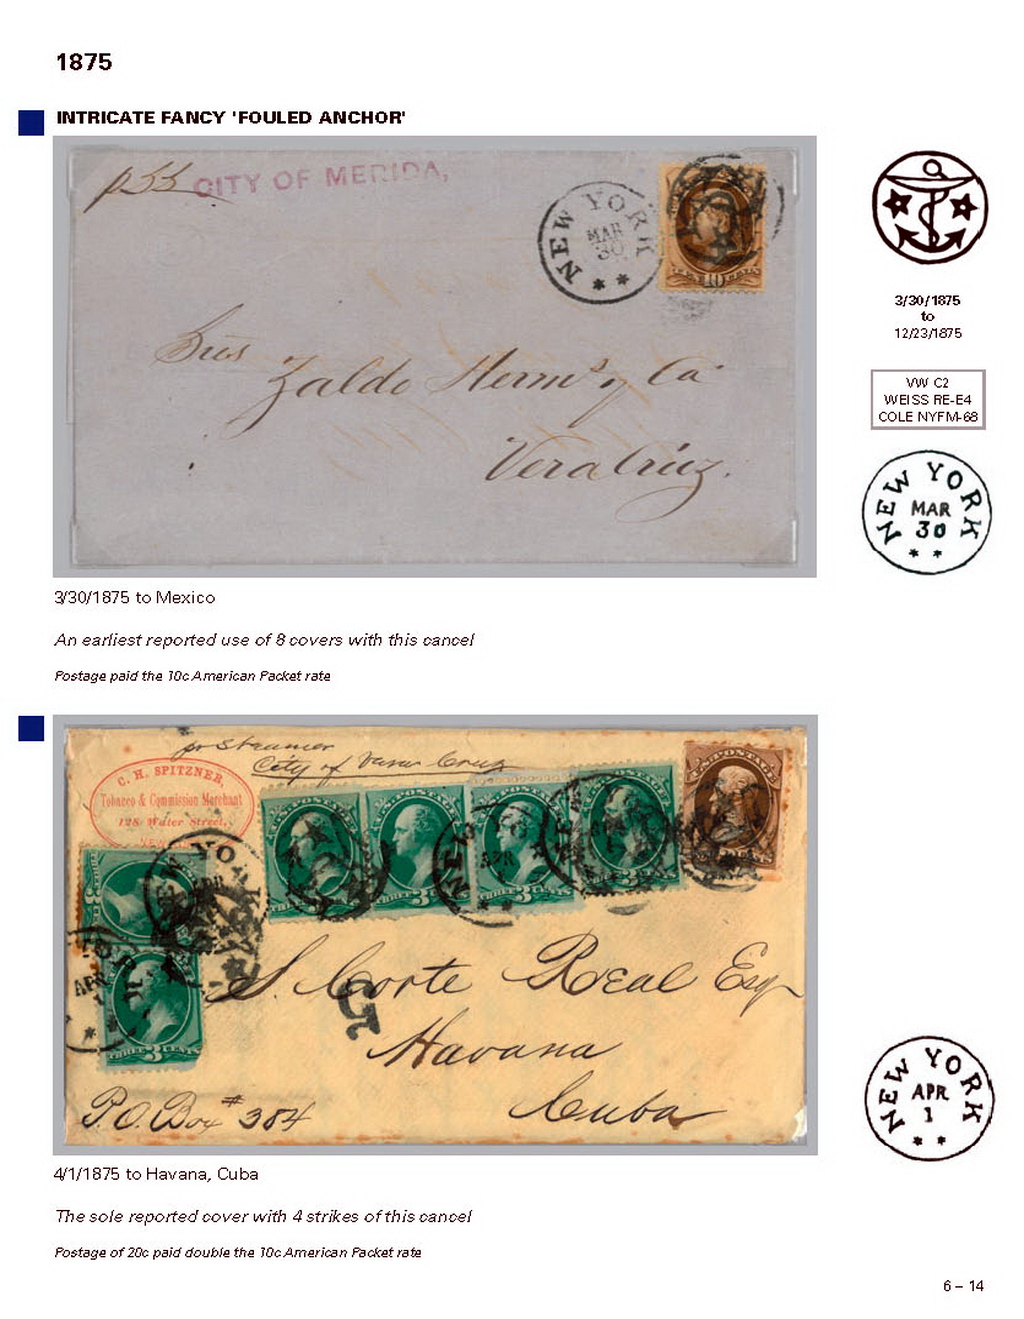 1875
INTRICATE FANCY 'FOULED ANCHOR'
p SS CITY OF MERIDA,
NEW YORK
MAR
30
TEN 10 CENTS
Sres
Zaldo Hermˢ y Ca
Vera Cruz.
3/30/1875
to
12/23/1875
VW C2
WEISS RE-E4
COLE NYFM-68
NEW YORK
MAR
30
3/30/1875 to Mexico
An earliest reported use of 8 covers with this cancel
Postage paid the 10c American Packet rate
pr Steamer
City of Vera Cruz
C. H. SPITZNER,
Tobacco & Commission Merchant
128 Water Street,
NEW
U.S. POSTAGE
THREE 3 CENTS
NEW YORK
APR
1
S. Corte Real Esq
5
Havana
Cuba
P.O. Box # 384
NEW YORK
APR
1
4/1/1875 to Havana, Cuba
The sole reported cover with 4 strikes of this cancel
Postage of 20c paid double the 10c American Packet rate
6 – 14